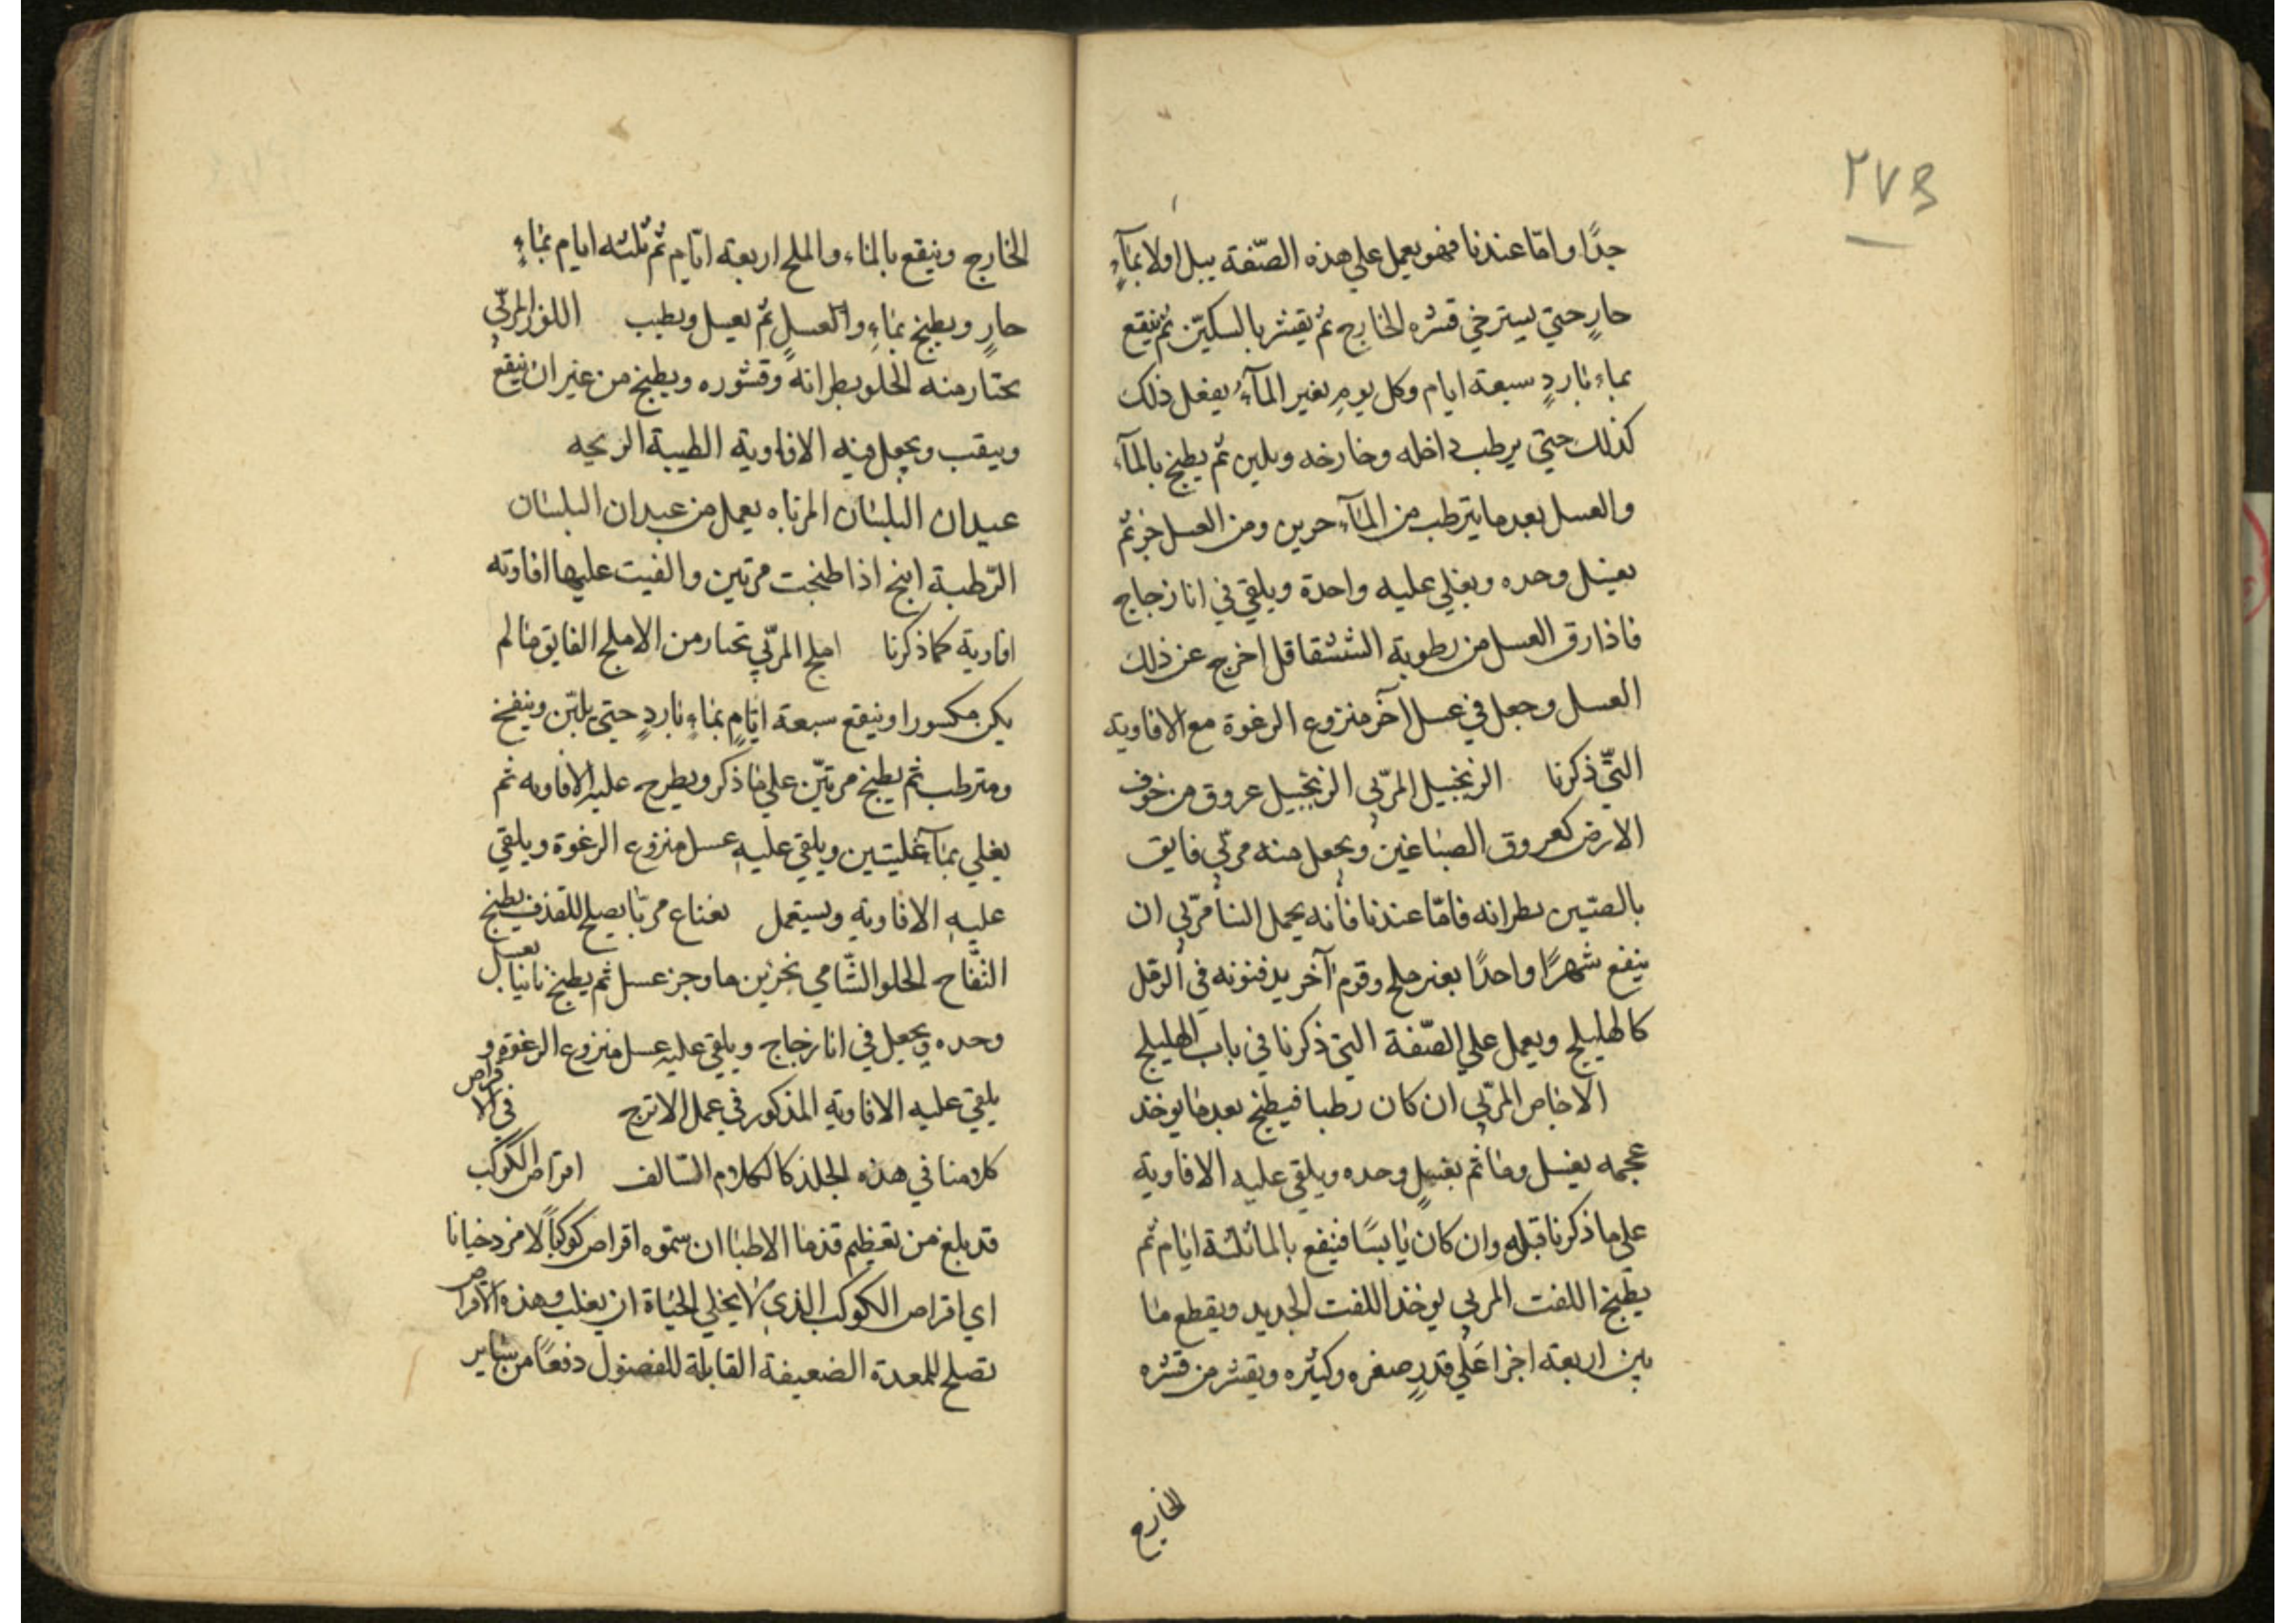 ٢٧٣
جدًا وامّا عندنا فهو يعمل علي هذه الصّفة يبل اولا بمآءٍ
حارٍ حتي يسترخي قشره الخارج ثم يقشر بالسكيّن ثم ينقع
بماء باردٍ سبعة ايام وكل يومٍ يغير المآءُ يفعل ذلك
كذلك حتي يرطب داخله وخارخه ويلين ثم يطبخ بالمآء
والعسل بعد ما يترطب من المآء جزين ومن العسل جز ثم
بعسل وحده ويغلي عليه واحدة ويلقي في انا زجاج
فاذا رق العسل من رطوبة الششقاقل اخرج عن ذلك
العسل وجعل في عسل آخر منزوع الرغوة مع الافاوية
التّي ذكرنا الزنجبيل المرّبي الزنجبيل عروق من خوف
الارض كعروق الصباغين ويجعل منه مربّي فايق
بالصين بطرانه فامّا عندنا فأنه يحمل الينا مرّبي ان
ينقع شهرًا واحدًا بغير ملح وقوم آخر يدفنونه في الرمل
كالهليلج ويعمل علي الصّفة التي ذكرنا في باب الهليلج
الاجاص المرّبي ان كان رطبا فيطبخ بعد ما يوخذ
عجمه بعسل وما ثم بعسلٍ وحده ويلقي عليه الافاوية
علي ما ذكرنا قبله وان كان يابسًا فينقع بالما ثلثة ايام ثم
يطبخ اللفت المربي يوخذ اللفت الجديد ويقطع ما
بين اربعة اجزا عَلي قدرٍ صغره وكبثره ويقشر من قشره
الخارج
الخارج وينقع بالماء والملح اربعة ايّام ثم ثلثه ايام بماءٍ
حارٍ ويطبخ بماءٍ والعسلٍ ثم بعسل ويطيب اللوز المربّي
يختار منه الحلو بطرانهً وقشوره ويطبخ من غير ان ينقع
ويبقب ويجعل فيه الافاوية الطيبة الريحيه
عيدان البلسان المرباه يعمل من عيدان البلسان
الرّطبة ابنخ اذا طبخت مرتين والقيت عليها افاوته
افاوية كما ذكرنا املج المرّبي تختار من الاملج الفايق ما لم
يكن مكسورا وينقع سبعة ايّامٍ بماءٍ باردٍ حتي يليّن وينفخ
ومترطب ثم يطبخ مرتيّن علي ما ذكر ويطرح عليه الافاويه ثم
يغلي بمآءٍ غليتين ويلقي عليه عسل منزوع الرغوة ويلقي
عليه الافاوية ويستعمل نعناع مربّا يصلح للقذف يطبخ
التفّاح الحلو الشّامي بخرين ما وجز عسل ثم يطبخ ثانيا بعسل
وحده ويجعل في انا زجاج ويلقي عليه عسل منزوع الرغوة و
يلقي عليه الافاوية المذكور في عمل الاترج في الاقراص
كلامنا في هذه الجلد كالكلام السّالف اقراص الكوكب
قد بلغ من تعظيم قدما الاطبا ان سمّوه اقراص كوكباً لامردخيانا
اي اقراص الكوكب الذي لا يخلي الحياة ان يغلب وهذه الاقراص
تصلح للمعدة الضعيفة القابلة للفصنول دفعًا من ساير